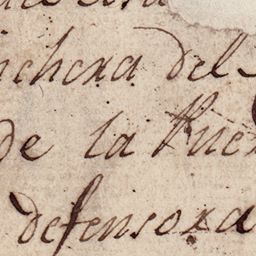 nchera del
de la Puer
defensora